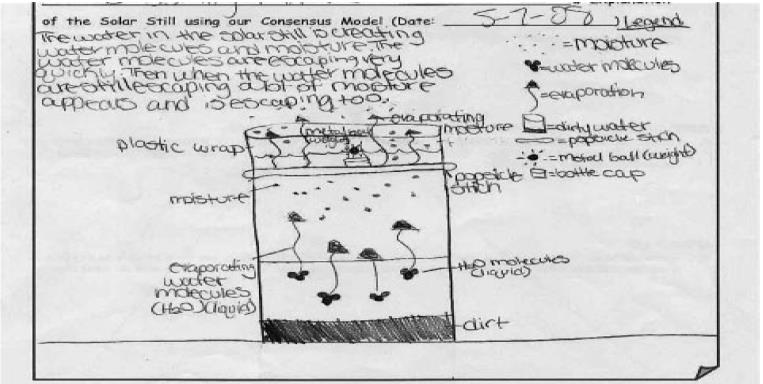 Explanation
of the Solar Still using our Consensus Model (Date: 5-7-08) Legend
The water in the solar still is creating
water molecules and moisture. The
water molecules are escaping very
quickly. Then when the water molecules
are still escaping a lot of moisture
appears and is escaping too.
= moisture
= water molecules
= evaporation
= dirty water
= popsicle stich
= metal ball (weight)
= bottle cap
evaporating
metal ball
weight
moisture
plastic wrap
popsicle
stich
moisture
evaporating
water
molecules
(H2O) (liquid)
H2O molecules
(liquid)
dirt